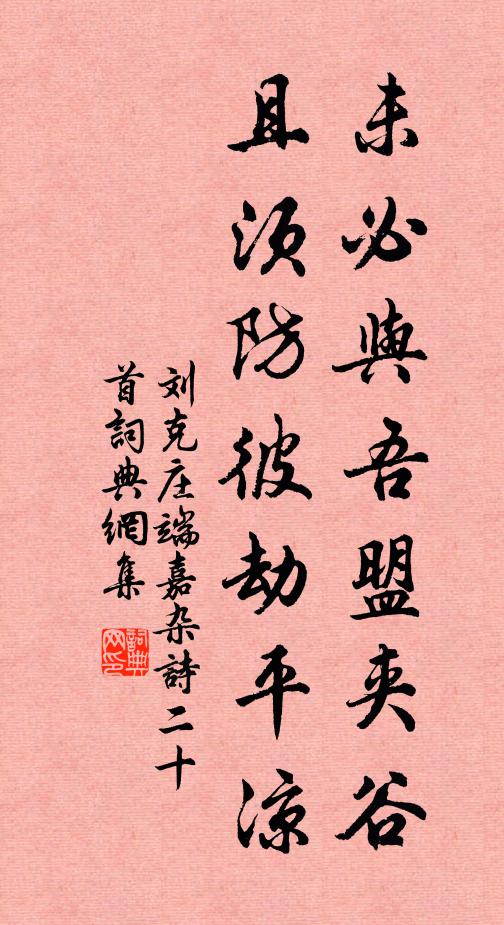 未必與吾盟夾谷
且須防彼劫平涼
刘克庄端嘉杂詩二十
首詞典網集
詞典网印